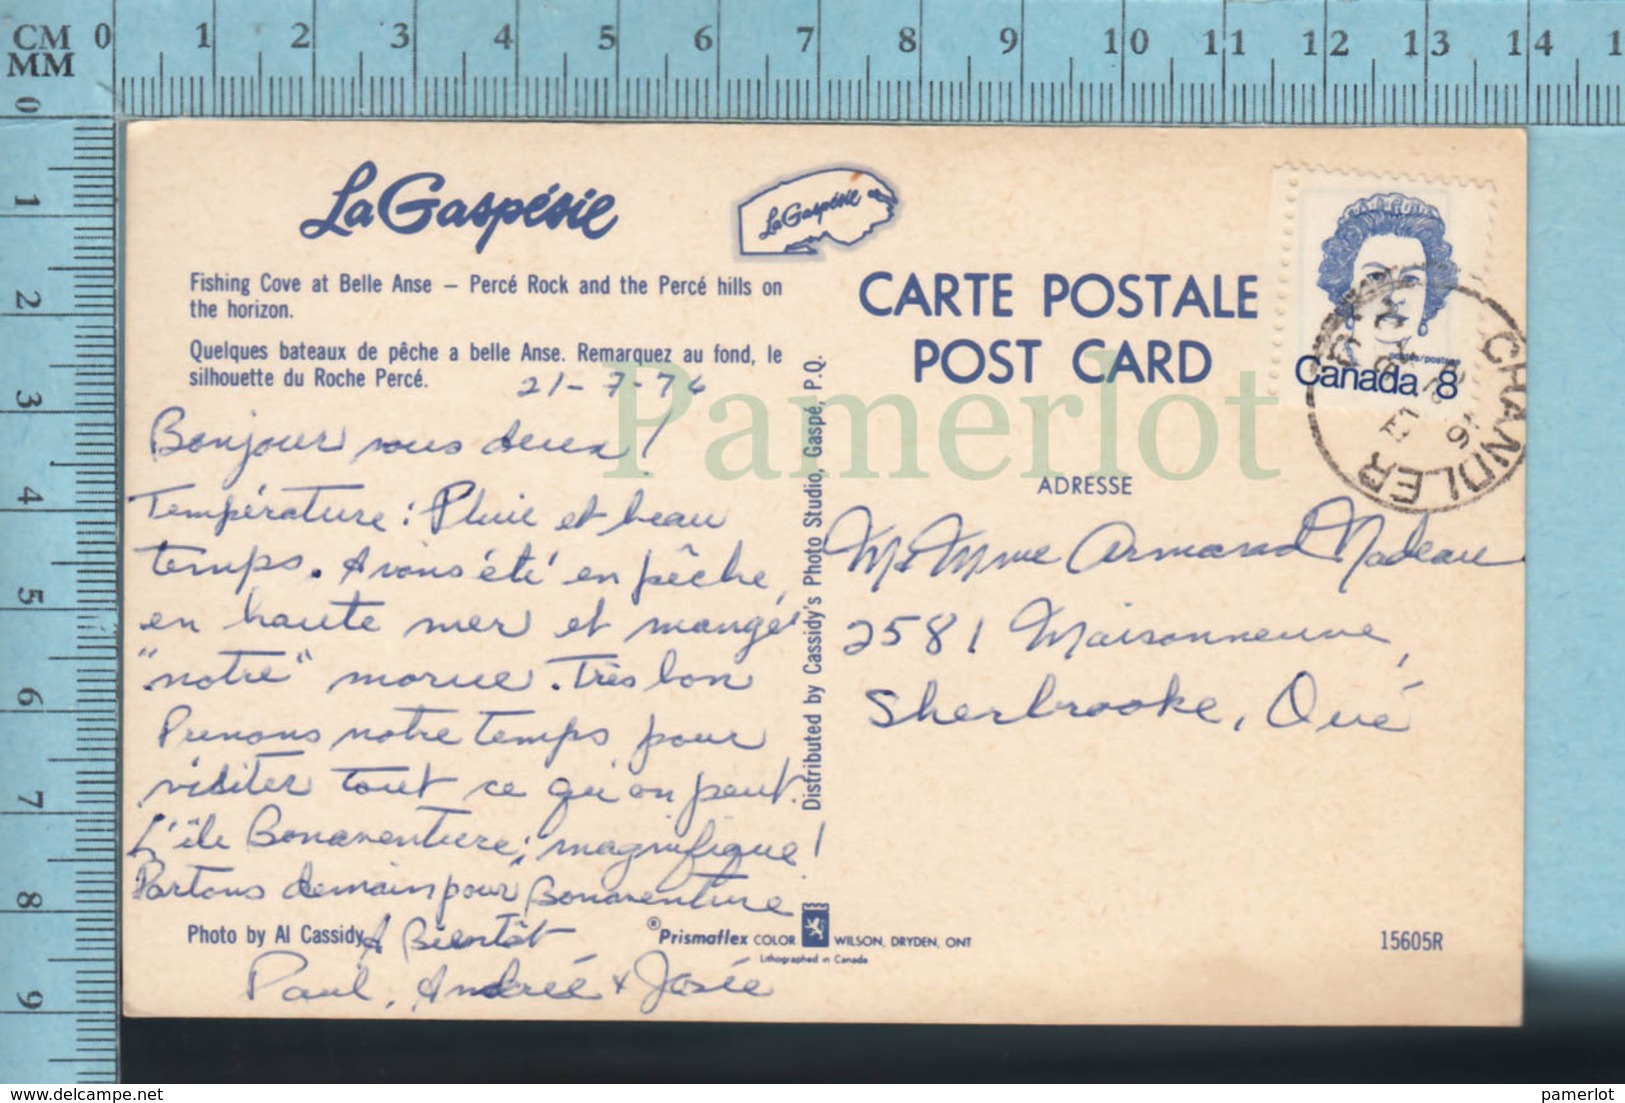 CM 0 1 2 3 4 5 6 7 8 9 10 11 12 13 14 1
MM
0 1 2 3 4 5 6 7 8 9
La Gaspésie
La Gaspésie
Fishing Cove at Belle Anse – Percé Rock and the Percé hills on
the horizon.
Quelques bateaux de pêche a belle Anse. Remarquez au fond, le
silhouette du Roche Percé.
21-7-76
Bonjour vous deux!
Température: Pluie et beau
temps. Avons été en pêche,
en haute mer et mangé
"notre" morue. Très bon
Prenons notre temps pour
visiter tout ce qu'on peut.
L'île Bonaventure; magnifique!
Partons demain pour Bonaventure
A Bientôt
Paul, Andrée & Josée
Photo by Al Cassidy
®Prismaflex COLOR WILSON, DRYDEN, ONT
Lithographed in Canada
15605R
Distributed by Cassidy's Photo Studio, Gaspé, P.Q.
CARTE POSTALE
POST CARD
ADRESSE
M. Mme Armand Nadeau
2581 Maisonneuve,
Sherbrooke, Qué
postes/postage
Canada 8
CHANDLER
Pamerlot
https://www.delcampe.net
pamerlot